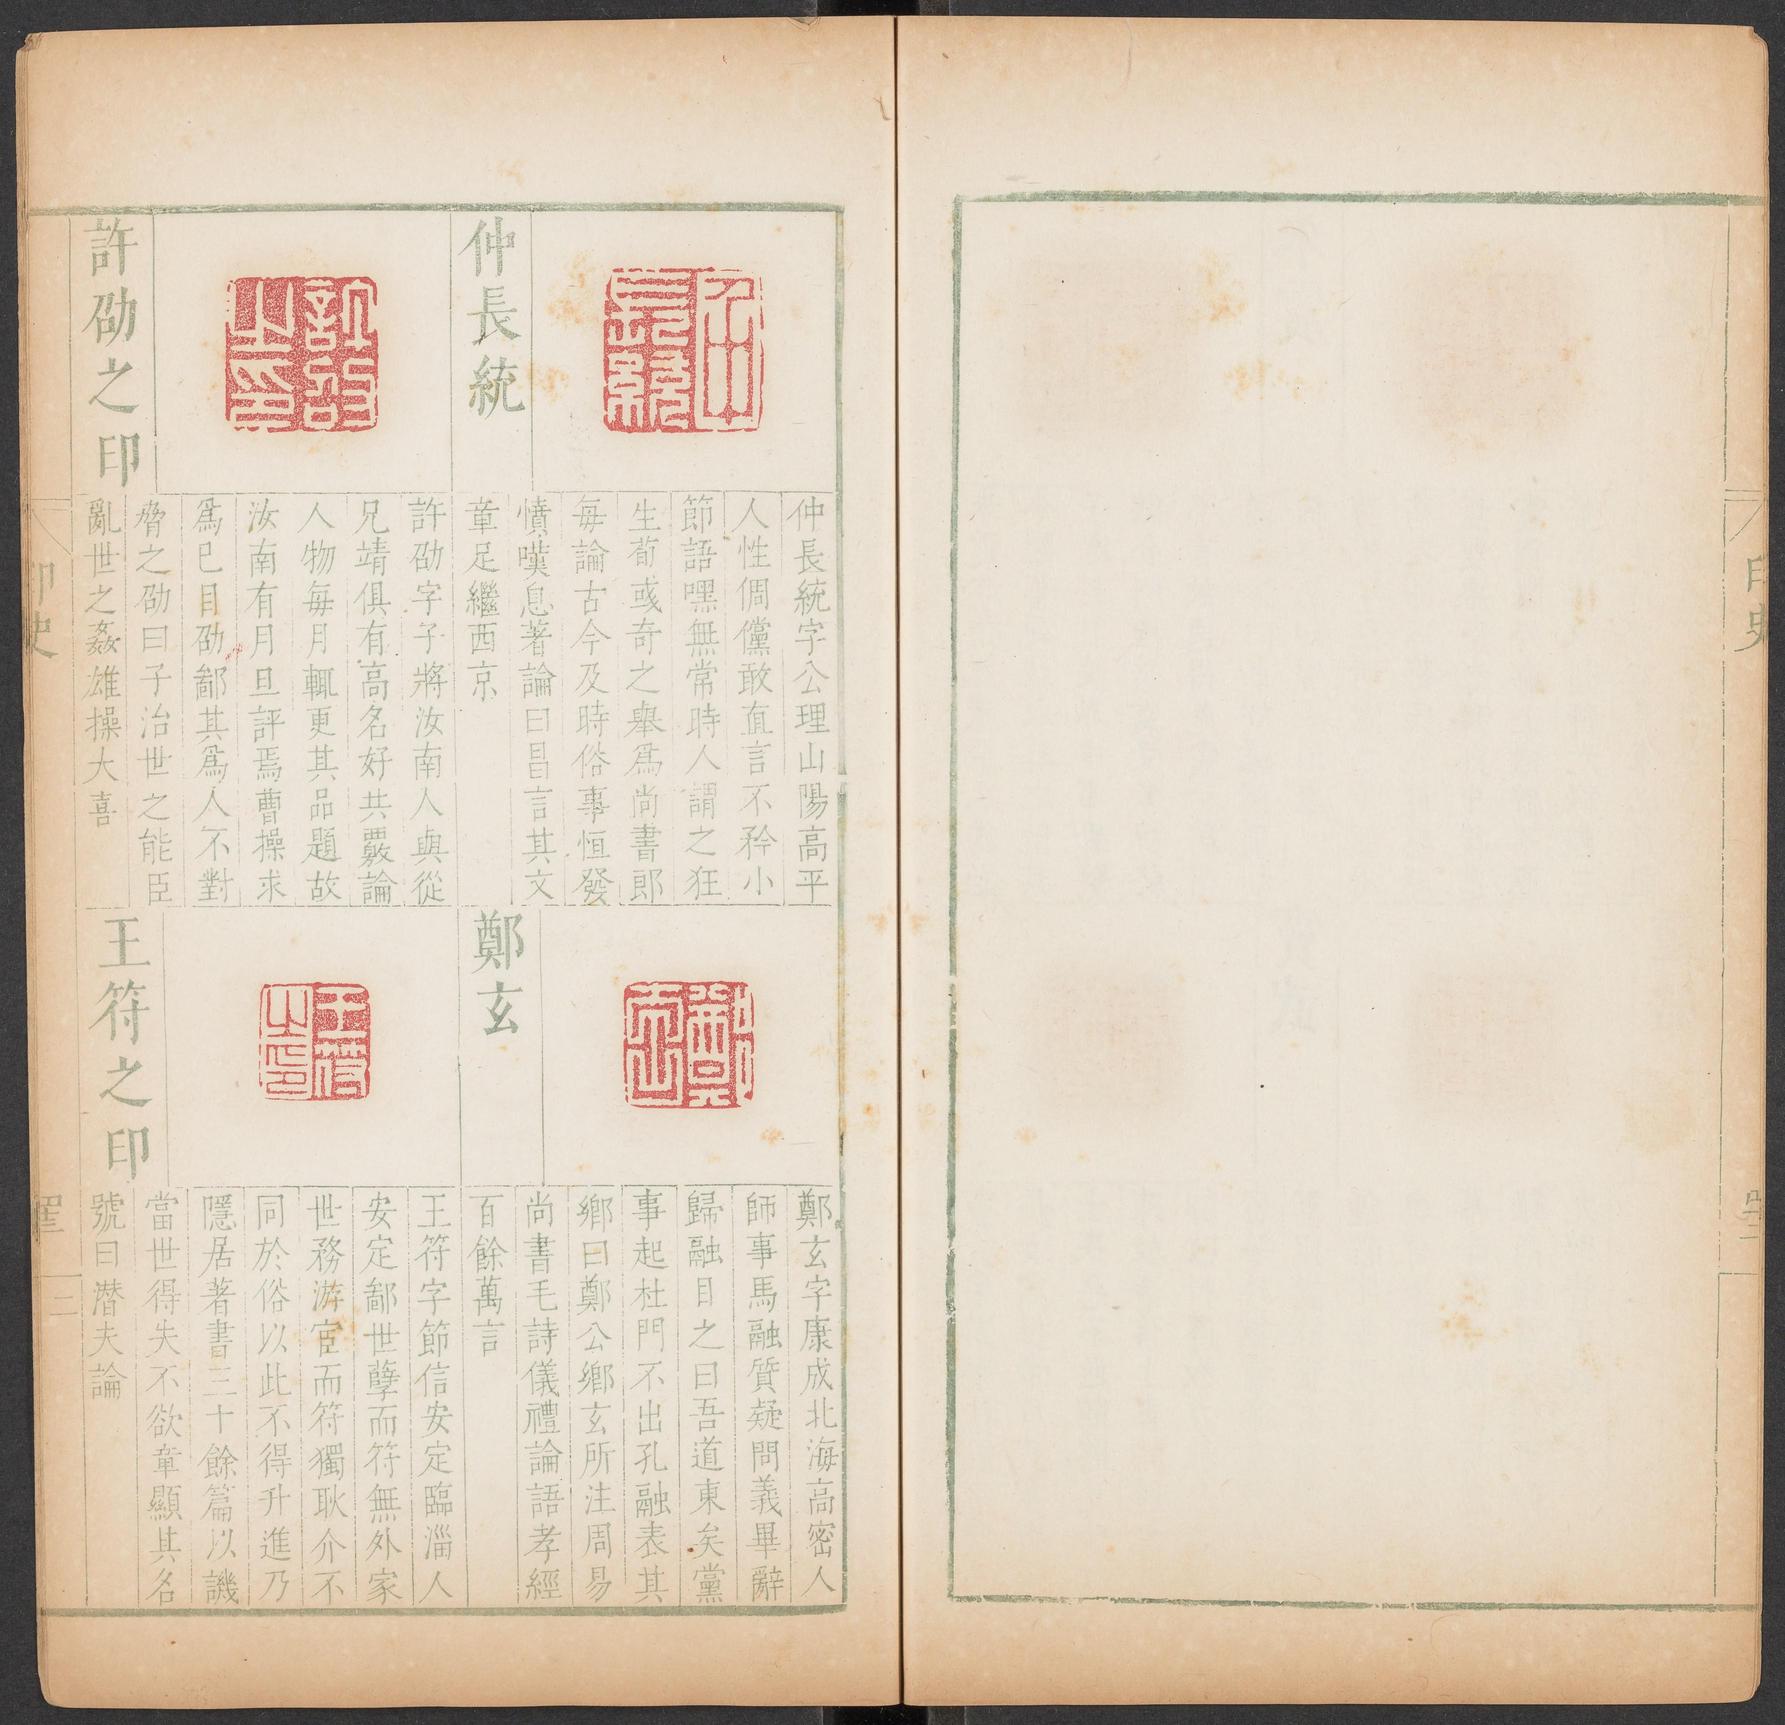 印史
仲長統
仲長統字公理山陽高平
人性倜儻敢直言不矜小
節語嘿無常時人謂之狂
生荀彧奇之舉爲尚書郎
每論古今及時俗事恒發
憤嘆息著論曰昌言其文
章足繼西京
許劭之印
許劭字子將汝南人與從
兄靖俱有高名好共覈論
人物每月輒更其品題故
汝南有月旦評焉曹操求
爲已目劭鄙其爲人不對
脅之劭曰子治世之能臣
亂世之姦雄操大喜
鄭玄
鄭玄字康成北海高密人
師事馬融質疑問義畢辭
歸融目之曰吾道東矣黨
事起杜門不出孔融表其
鄉曰鄭公鄉玄所注周易
尚書毛詩儀禮論語孝經
百餘萬言
王符之印
王符字節信安定臨淄人
安定鄙世孽而符無外家
世務游宦而符獨耿介不
同於俗以此不得升進乃
隱居著書三十餘篇以譏
當世得失不欲章顯其名
號曰潛夫論
印史